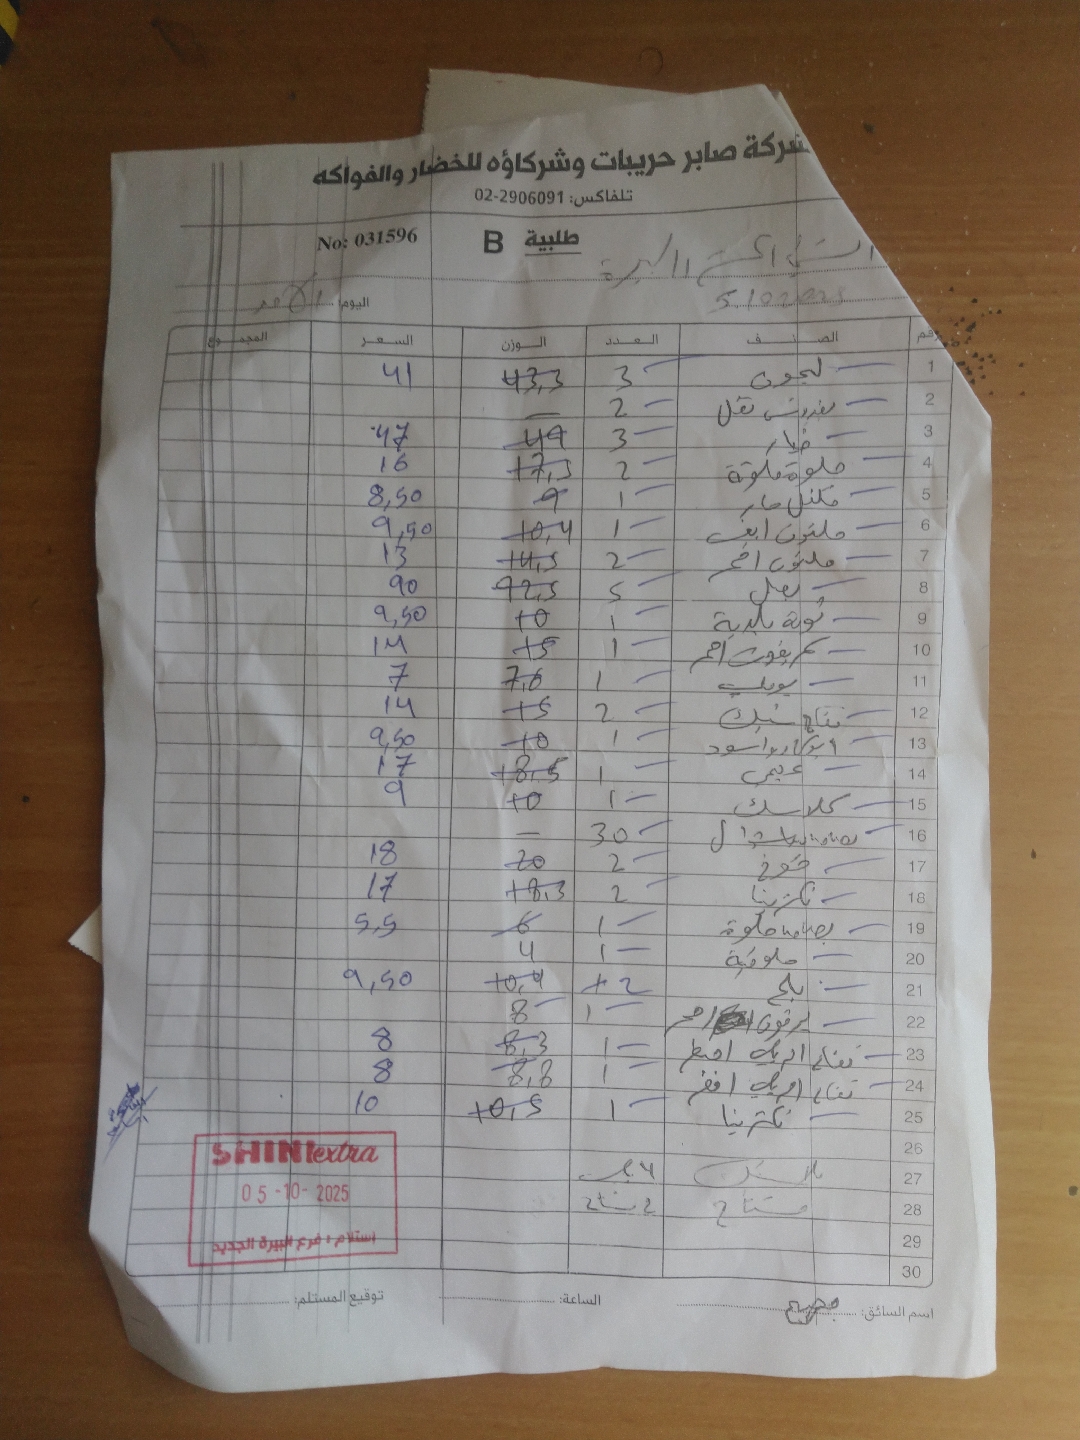 شركة صابر حريبات وشركاؤه للخضار والفواكه
تلفاكس: 02-2906091
No: 031596 طلبية B
البيرة
اليوم: الأحد 5/10/2025
رقم الصنف العدد الوزن السعر المجموع
1 ليمون 3 43,3 41
2 بقدونس نعنع 2 —
3 خيار 3 49 47
4 حلوة ملونة 2 17,3 16
5 فلفل حار 1 9 8,50
6 ملفوف ابيض 1 10,4 9,50
7 ملفوف احمر 2 14,5 13
8 بصل 5 92,5 90
9 ثومة بلدية 1 10 9,50
10 جريفوت احمر 1 15 14
11 بوملي 1 7,6 7
12 تفاح سنيك 2 15 14
13 افوكادو اسود 1 10 9,50
14 1 18,5 17
15 كلاسك 1 10 9
16 30 —
17 خوخ 2 20 18
18 نكترينا 2 18,3 17
19 بطاطا حلوة 1 6 5,5
20 ملوخية 1 4
21 بلح 2 10,4 9,50
22 برقوق احمر 1 8
23 تفاح امريكي اصفر 1 8,3 8
24 تفاح امريكي اخضر 1 8,8 8
25 نكترينا 1 10,5 10
26
27 بلاستيك
28 مشتاح 2 مشتاح
29
30
SHINI extra
05-10-2025
استلام : فرع البيرة الجديد
اسم السائق: الساعة: توقيع المستلم: